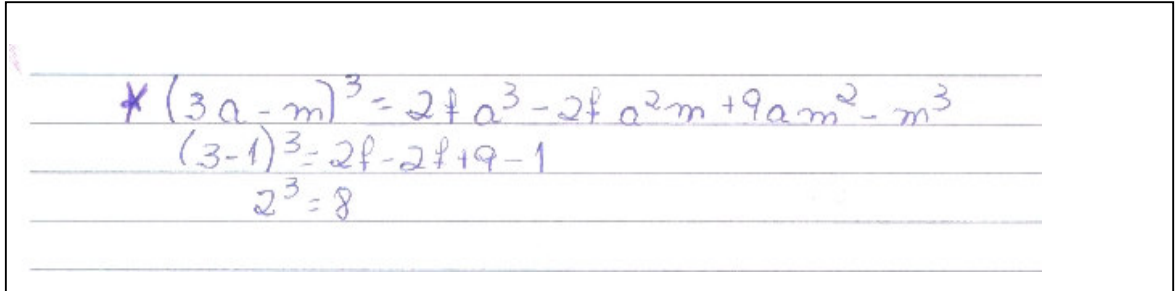 * (3a - m)³ = 27a³ - 27a²m + 9am² - m³
(3-1)³ = 27 - 27 + 9 - 1
2³ = 8